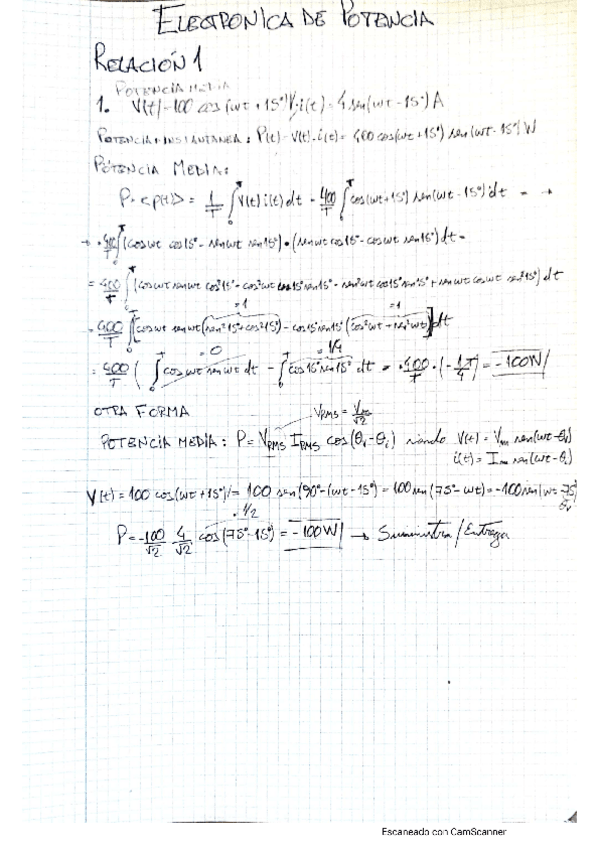 ELECTRONICA DE POTENCIA
RELACIÓN 1
POTENCIA MEDIA
1. V(t) = 100 cos(wt + 15°) V; i(t) = 4 sen(wt - 15°) A
POTENCIA INSTANTANEA: P(t) = V(t)·i(t) = 400 cos(wt + 15°) sen(wt - 15°) W
POTENCIA MEDIA:
P = <p(t)> = 1/T ∫₀ᵀ V(t) i(t) dt = 400/T ∫₀ᵀ cos(wt + 15°) sen(wt - 15°) dt = →
→ = 400/T ∫₀ᵀ (cos wt cos 15° - sen wt sen 15°) · (sen wt cos 15° - cos wt sen 15°) dt =
= 400/T ∫₀ᵀ (cos wt sen wt cos²15° - cos²wt cos 15° sen 15° - sen²wt cos 15° sen 15° + sen wt cos wt sen²15°) dt
= 1 = 1
= 400/T ∫₀ᵀ [cos wt sen wt (sen²15° + cos²15°) - cos 15° sen 15° (cos²wt + sen²wt)] dt
= 0 1/4
= 400/T ( ∫₀ᵀ cos wt sen wt dt - ∫₀ᵀ cos 15° sen 15° dt = 400/T · (- 1/4 T) = -100W
OTRA FORMA
VRMS = Vm/√2
POTENCIA MEDIA: P = VRMS IRMS cos(θv - θi) siendo V(t) = Vm sen(wt - θv)
i(t) = Im sen(wt - θi)
V(t) = 100 cos(wt + 15°) = 100 sen(90° - (wt - 15°) = 100 sen(75° - wt) = -100 sen(wt - 75°)
θv
1/2
P = -100/√2 4/√2 cos(75° - 15°) = -100W → Suministra / Entrega
Escaneado con CamScanner